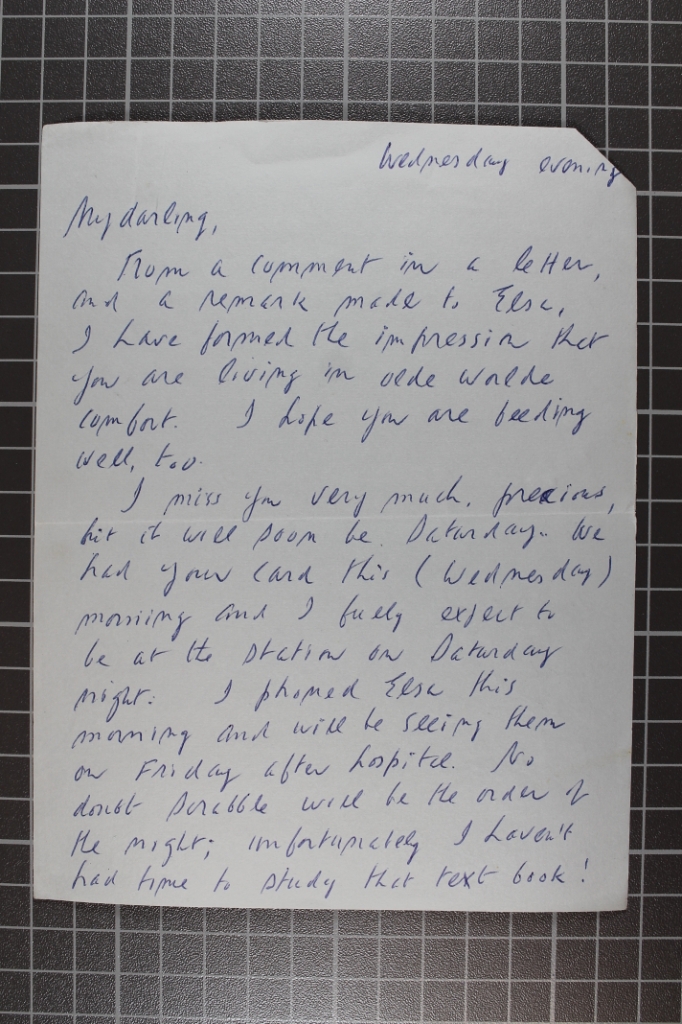 Wednesday evening
My darling,
From a comment in a letter,
and a remark made to Elsa,
I have formed the impression that
you are living in olde worlde
comfort. I hope you are feeding
well, too.
I miss you very much, precious,
but it will soon be Saturday. We
had your card this (Wednesday)
morning and I fully expect to
be at the station on Saturday
night. I phoned Elsa this
morning and will be seeing them
on Friday after hospital. No
doubt Scrabble will be the order of
the night; unfortunately I haven't
had time to study that text book!